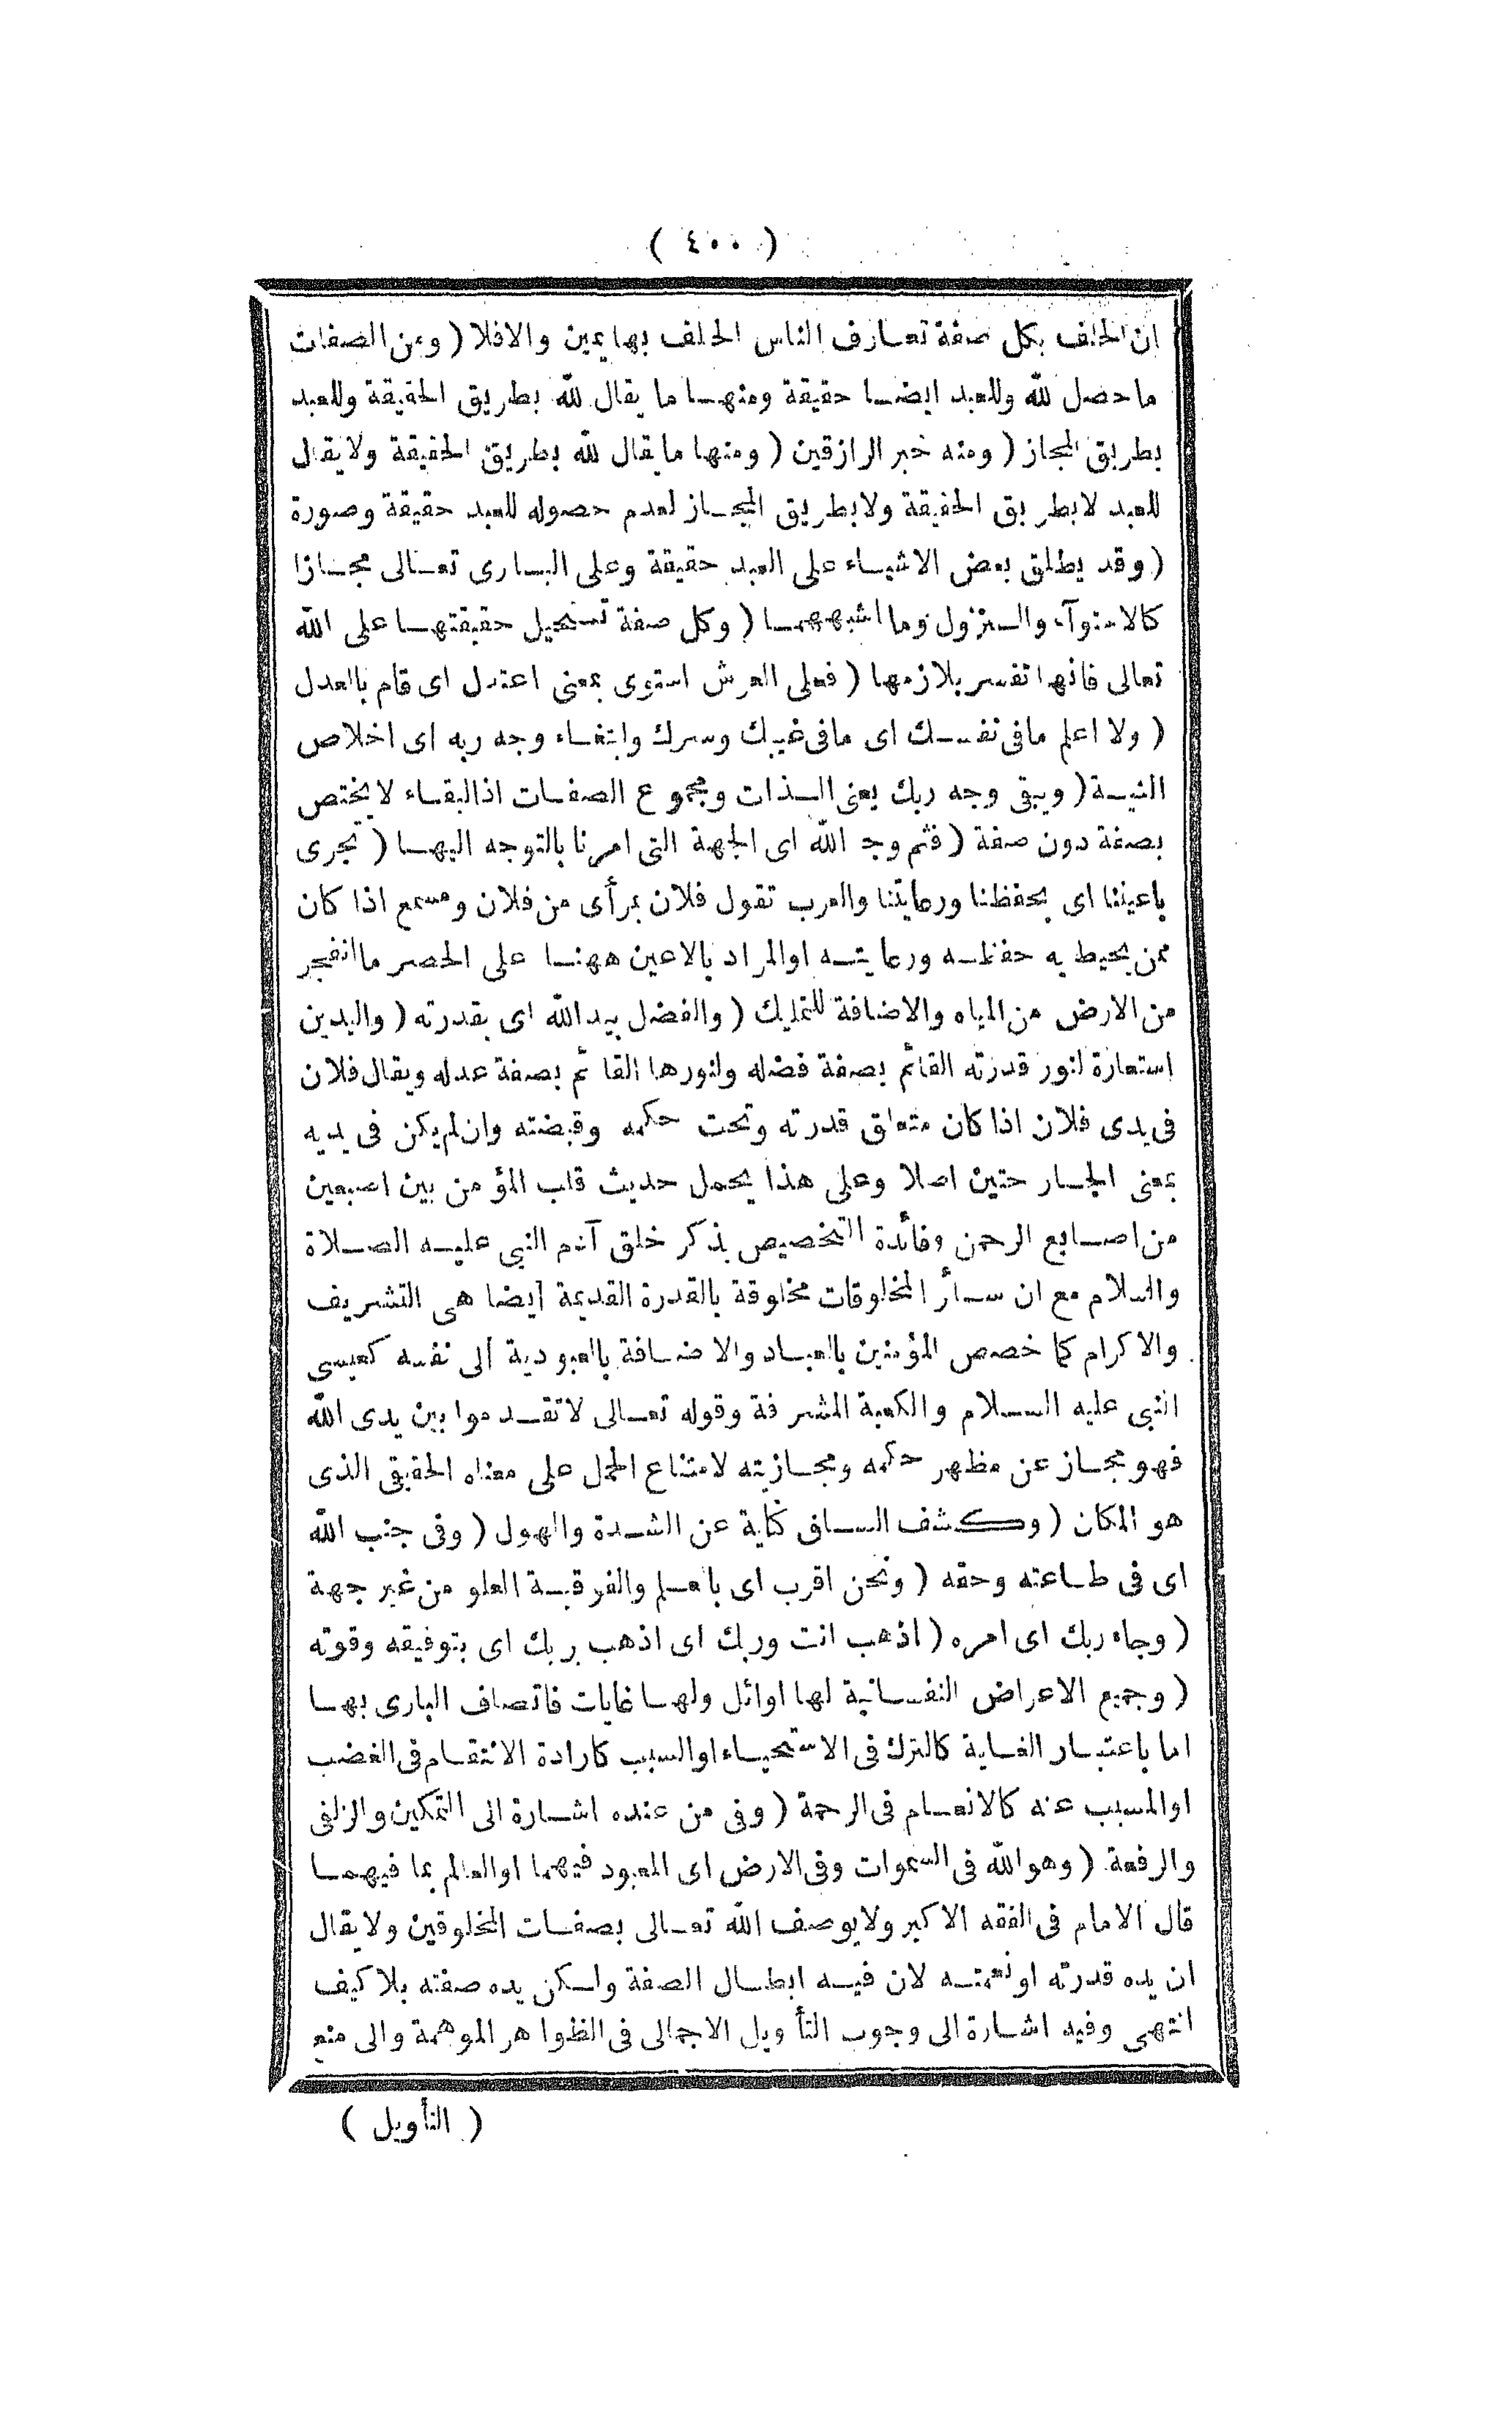 ( ٤٠٠ )
ان الحلف بكل صفة تعارف الناس الحلف بها يمين والا فلا ( ومن الصفات
ما حصل لله وللعبد ايضا حقيقة ومنها ما يقال لله بطريق الحقيقة وللعبد
بطريق المجاز ( ومنه خير الرازقين ( ومنها ما يقال لله بطريق الحقيقة ولا يقال
للعبد لا بطريق الحقيقة ولا بطريق المجاز لعدم حصوله للعبد حقيقة وصورة
( وقد يطلق بعض الاشياء على العبد حقيقة وعلى البارى تعالى مجازا
كالاستوآء والنزول وما اشبههما ( وكل صفة تستحيل حقيقتها على الله
تعالى فانها تفسر بلازمها ( فعلى العرش استوى بمعنى اعتدل اى قام بالعدل
( ولا اعلم مافى نفسك اى مافى غيبك وسرك وابتغاء وجه ربه اى اخلاص
النية ( ويبقى وجه ربك يعنى الذات ومجموع الصفات اذ البقاء لا يختص
بصفة دون صفة ( فثم وجه الله اى الجهة التى امرنا بالتوجه اليها ( تجرى
باعيننا اى بحفظنا ورعايتنا والعرب تقول فلان بمرأى من فلان ومسمع اذا كان
ممن يحيط به حفظه ورعايته او المراد بالاعين ههنا على الحصر ما انفجر
من الارض من المياه والاضافة للتمليك ( والفضل بيد الله اى بقدرته ( واليدين
استعارة لنور قدرته القائم بصفة فضله ولنورها القائم بصفة عدله ويقال فلان
فى يدى فلان اذا كان متعلق قدرته وتحت حكمه وقبضته وان لم يكن فى يديه
بمعنى الجارحتين اصلا وعلى هذا يحمل حديث قلب المؤمن بين اصبعين
من اصابع الرحمن وفائدة التخصيص بذكر خلق آدم النبى عليه الصلاة
والسلام مع ان سائر المخلوقات مخلوقة بالقدرة القديمة ايضا هى التشريف
والاكرام كما خصص المؤمنين بالعباد والاضافة بالعبودية الى نفسه كعيسى
النبى عليه السلام والكعبة المشرفة وقوله تعالى لا تقدموا بين يدى الله
فهو مجاز عن مظهر حكمه ومجازيته لامتناع الحمل على معناه الحقيقى الذى
هو المكان ( وكشف الساق كناية عن الشدة والهول ( وفى جنب الله
اى فى طاعته وحقه ( ونحن اقرب اى بالعلم والفوقية العلو من غير جهة
( وجاء ربك اى امره ( اذهب انت وربك اى اذهب بربك اى بتوفيقه وقوته
( وجميع الاعراض النفسانية لها اوائل ولها غايات فاتصاف البارى بها
اما باعتبار الغاية كالترك فى الاستحياء او السبب كارادة الانتقام فى الغضب
او المسبب عنه كالانعام فى الرحمة ( وفى من عنده اشارة الى التمكين والزلفى
والرفعة ( وهو الله فى السموات وفى الارض اى المعبود فيهما او العالم بما فيهما
قال الامام فى الفقه الاكبر ولا يوصف الله تعالى بصفات المخلوقين ولا يقال
ان يده قدرته او نعمته لان فيه ابطال الصفة ولكن يده صفته بلا كيف
انتهى وفيه اشارة الى وجوب التأويل الاجمالى فى الظواهر الموهمة والى منع
( التأويل )